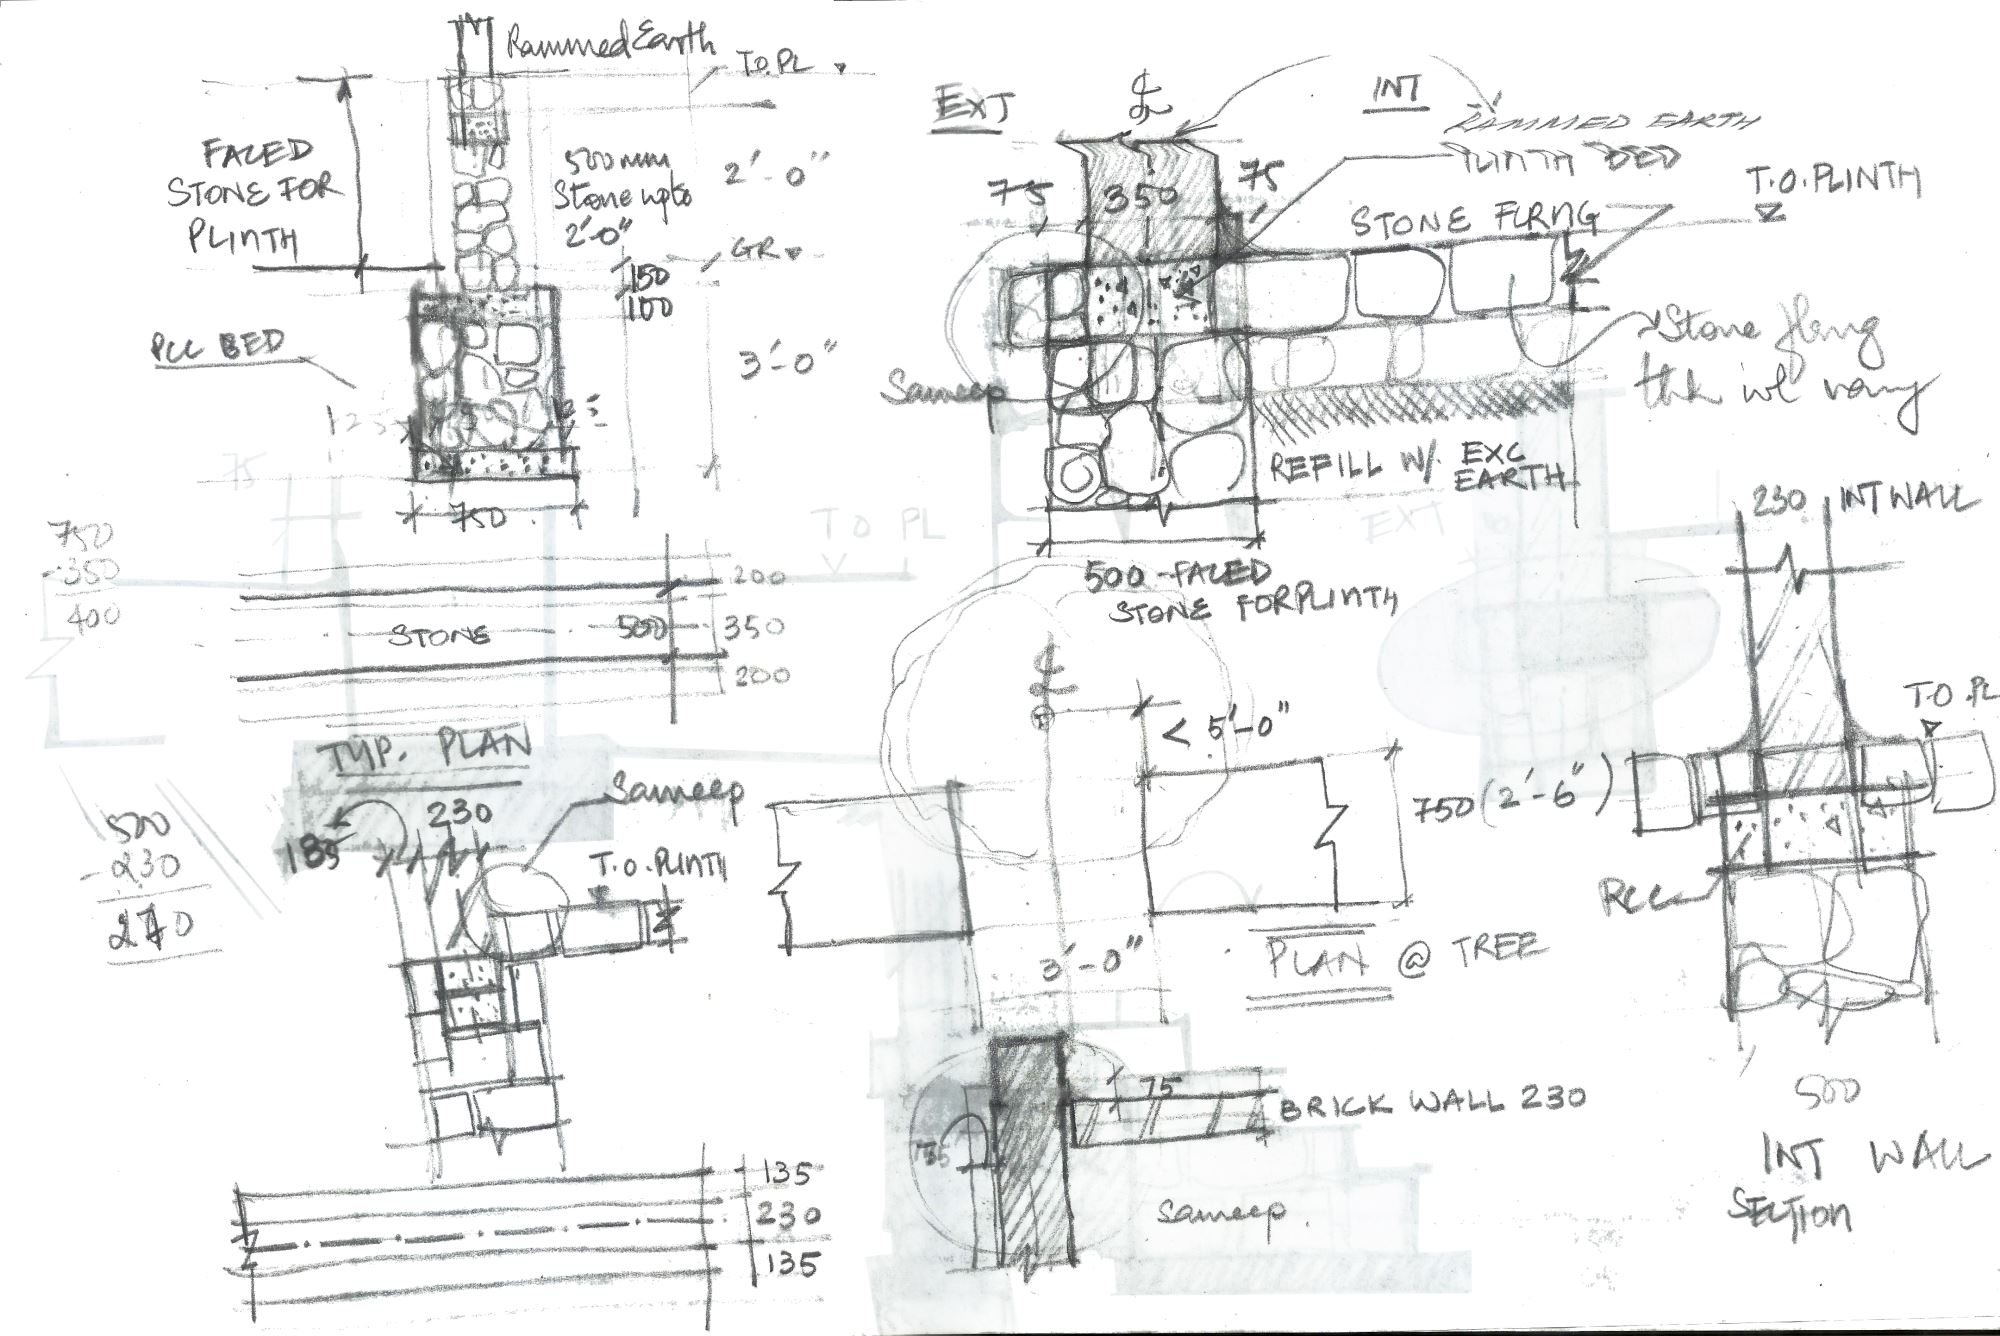 Rammed Earth
T.O.PL
FACED
STONE FOR
PLINTH
500 mm
Stone upto
2'-0"
2'-0"
GR
150
100
PCC BED
3'-0"
125
750
750
-350
400
75
TO PL
200
STONE
500
350
200
TYP. PLAN
500
-230
270
185
230
Sameep
T.O.PLINTH
135
230
135
EXT
INT
RAMMED EARTH
PLINTH BED
75
350
75
T.O.PLINTH
STONE FLRNG
Sameep
Stone flrng
thk wl vary
REFILL W/ EXC
EARTH
500-FACED
STONE FOR PLINTH
EXT
< 5'-0"
750 (2'-6")
3'-0"
PLAN @ TREE
75
BRICK WALL 230
Sameep.
230 INT WALL
T.O.PL
RCC
500
INT WALL
SECTION